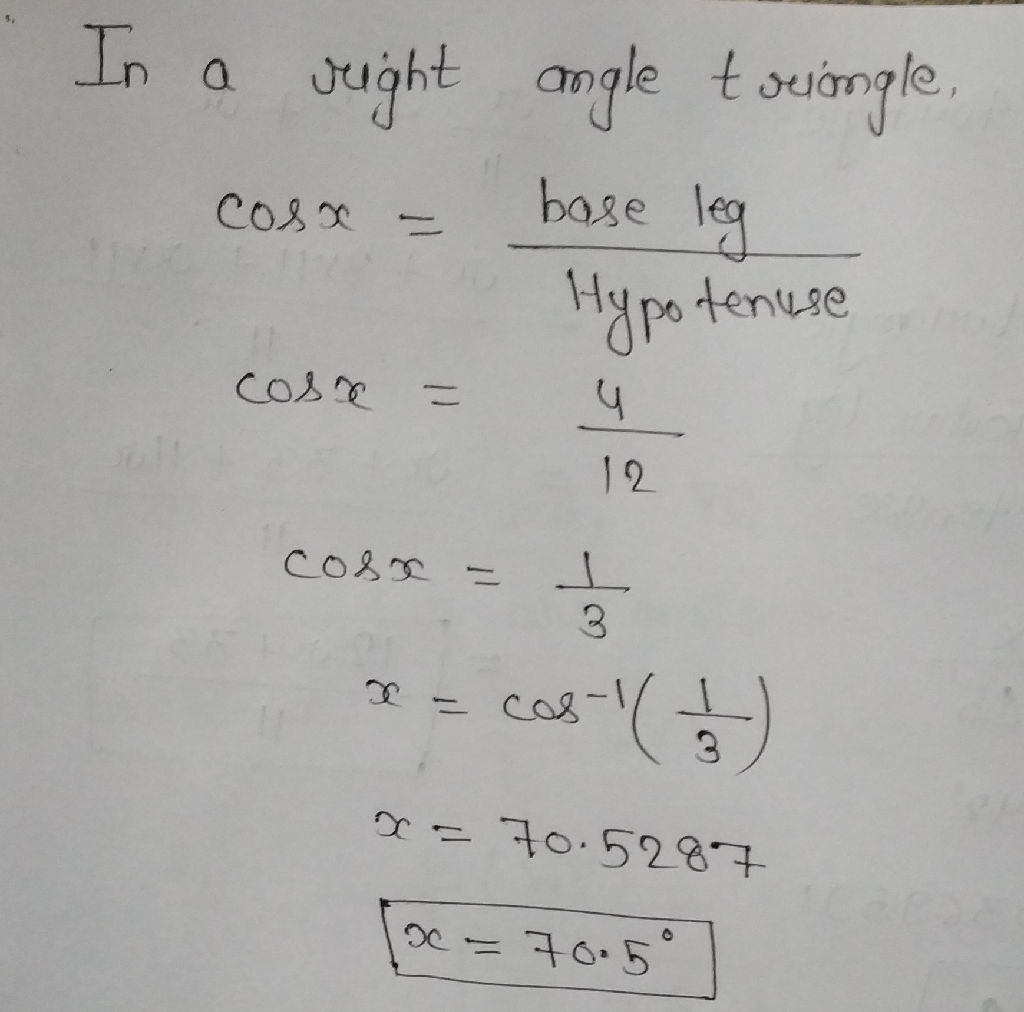 In a right angle triangle,
cosx = base leg / Hypotenuse
cosx = 4 / 12
cosx = 1 / 3
x = cos-1(1/3)
x = 70.5287
x = 70.5°